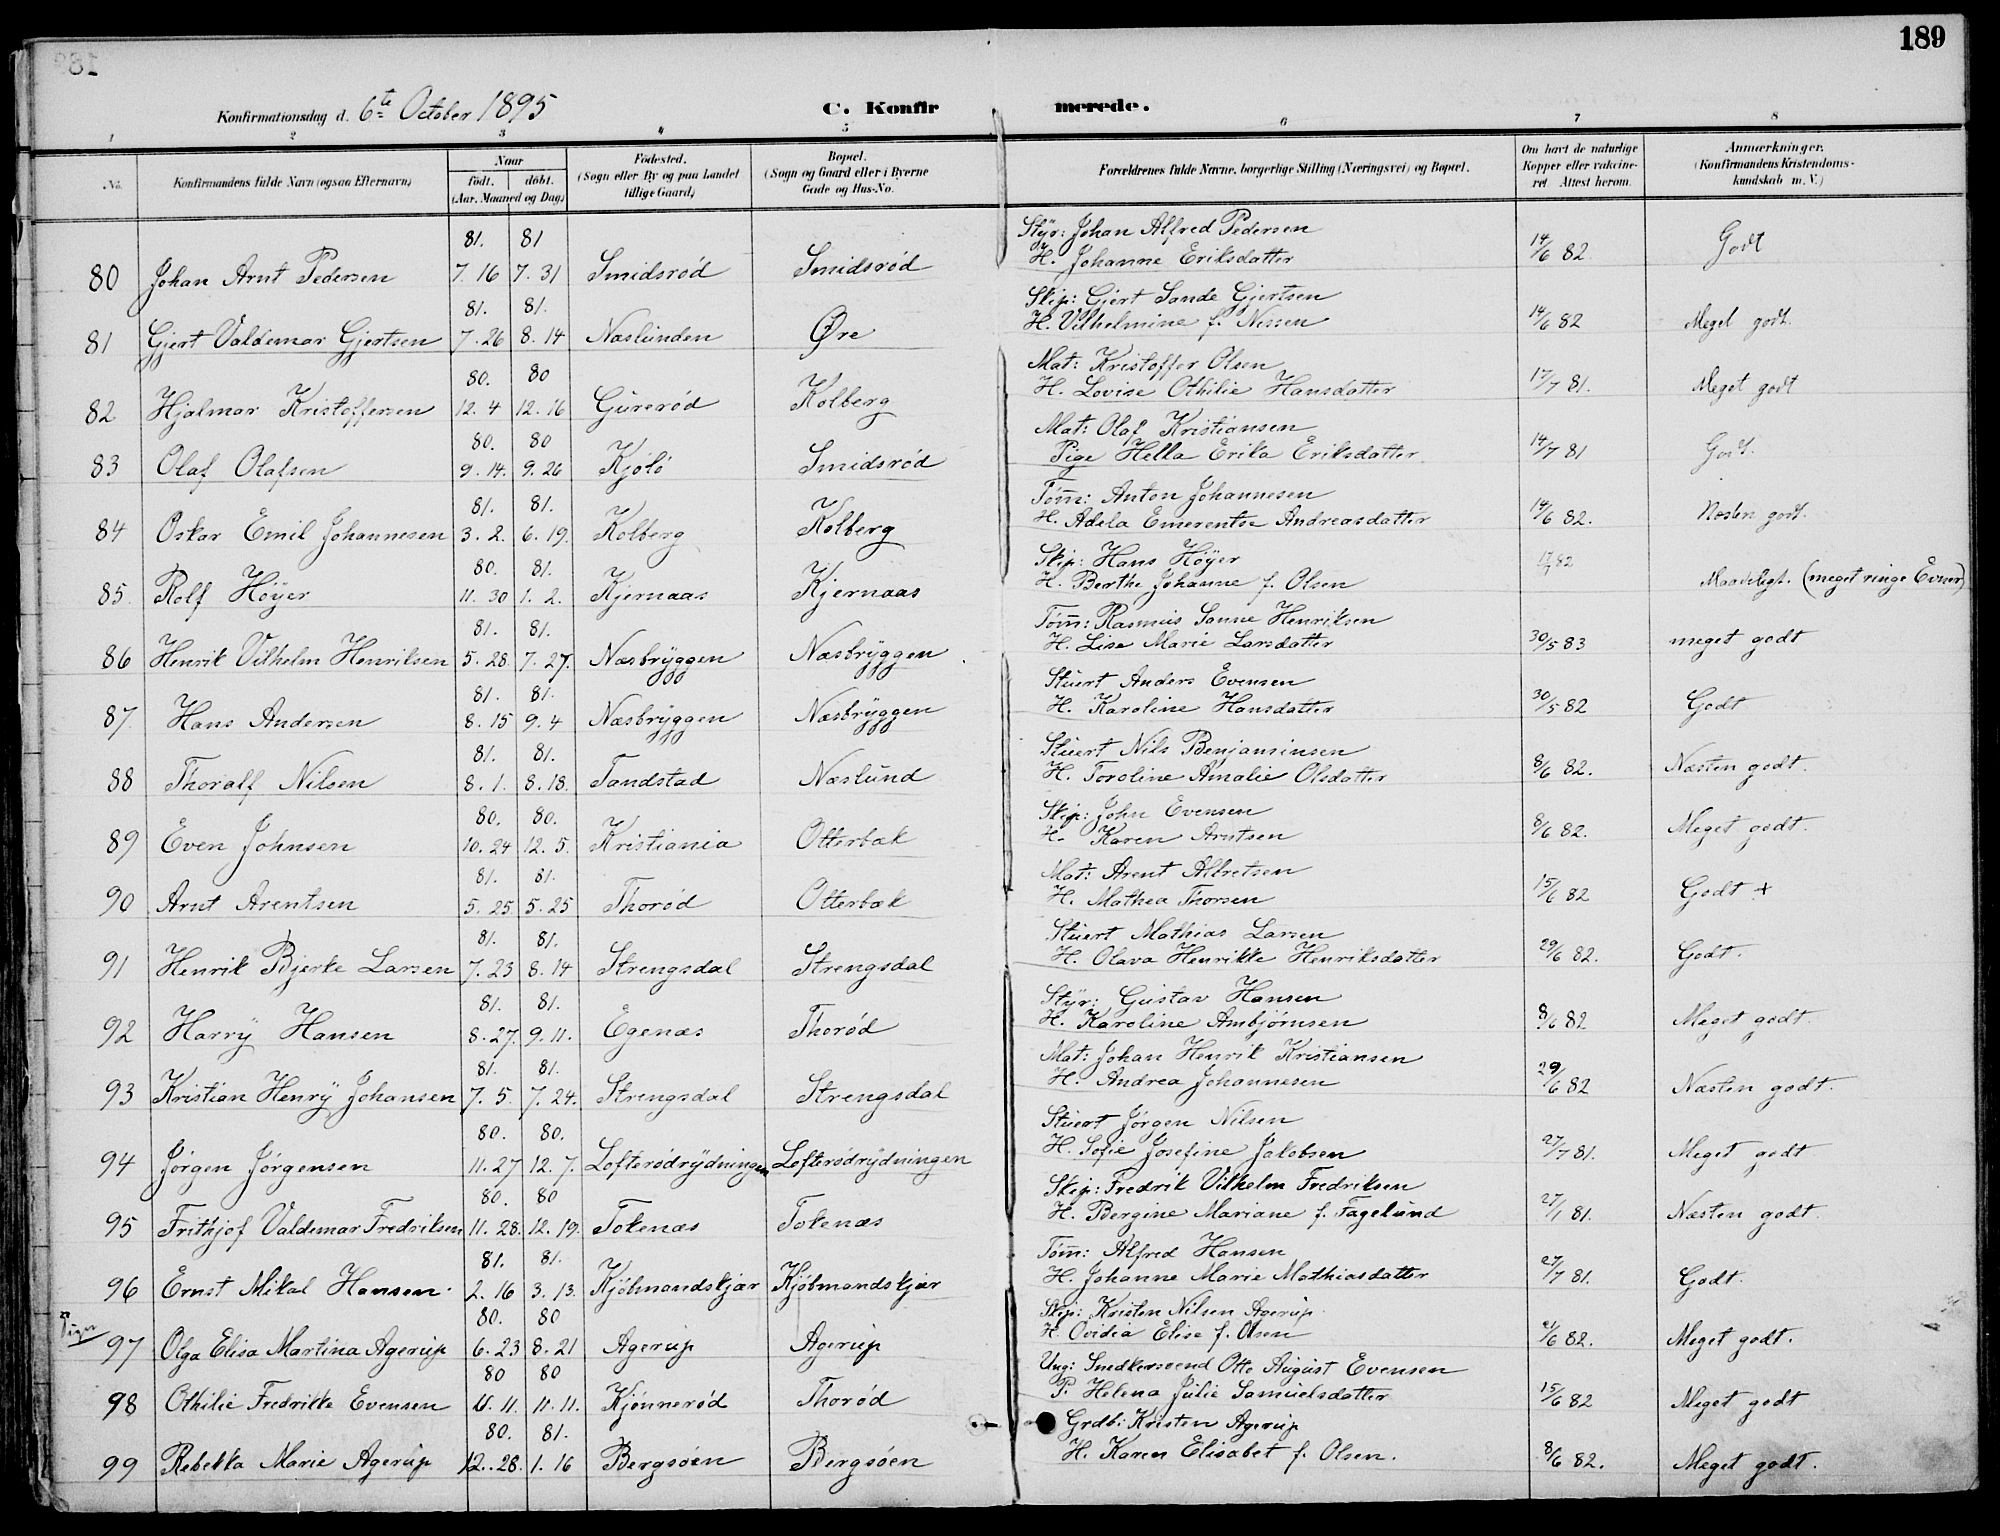 189
Konfirmationsdag d. 6te October 1895
C. Konfirmerede.
1 2 3 4 5 6 7 8
No. Konfirmandens fulde Navn (ogsaa Efternavn) Naar födt. döbt. (Aar, Maaned og Dag) Födested. (Sogn eller By og paa Landet tillige Gaard) Bopæl. (Sogn og Gaard eller i Byerne Gade og Hus-No. Forældrenes fulde Navne, borgerlige Stilling (Næringsvei) og Bopæl. Om havt de naturlige Kopper eller vakcineret Attest herom. Anmærkninger. (Konfirmandens Kristendomskundskab m. V.)
81. 81 Styr: Johan Alfred Pedersen
80 Johan Arnt Pedersen 7. 16 7. 31 Smidsrød Smidsrød H. Johanne Eriksdatter 14/6 82 Godt
81. 81. Skip: Gjert Sande Gjertsen
81 Gjert Valdemar Gjertsen 7. 26 8. 14 Næslunden Øre H. Vilhelmine f. Nissen 14/6 82 Meget godt.
80. 80 Mat: Kristoffer Olsen
82 Hjalmar Kristoffersen 12. 4 12. 16 Gurerød Kolberg H. Lovise Othilie Hansdatter 17/7 81. Meget godt
80. 80 Mat: Olaf Kristiansen
83 Olaf Olafsen 9. 14. 9. 26 Kjølø Smidsrød Pige Hella Erika Eriksdatter 14/7 81 Godt.
81. 81. Tøm: Anton Johannesen
84 Oskar Emil Johannesen 3. 2. 6. 19. Kolberg Kolberg H. Adela Emerentse Andreasdatter 14/6 82. Næsten godt.
80. 81. Skip: Hans Høyer
85. Rolf Höyer 11. 30 1. 2. Kjernaas Kjernaas H. Berthe Johanne f. Olsen Maadeligt. (meget ringe Evner)
81. 81. Tøm: Rasmus Sanne Henriksen
86 Henrik Vilhelm Henriksen 5. 28. 7. 27. Næsbryggen Næsbryggen H. Lise Marie Larsdatter 30/5 83 meget godt
81. 81. Stuert Anders Evensen
87. Hans Andersen 8. 15 9. 4 Næsbryggen Næsbryggen H. Karoline Hansdatter 30/5 82 Godt
81. 81. Stuert Nils Benjaminsen
88 Thoralf Nilsen 8. 1. 8. 18. Tandstad Næslund H. Toroline Amalie Olsdatter 8/6 82. Næsten godt.
80. 80. Skip: John Evensen
89 Even Johnsen 10. 24 12. 5. Kristiania Otterbæk H. Karen Arntsen 8/6 82. Meget godt.
81. 81. Mat: Arent Albretsen
90 Arnt Arentsen 5. 25. 5. 25 Thorød Otterbæk H. Mathea Thorsen 15/6 82 Godt +
81. 81. Stuert Mathias Larsen
91 Henrik Bjerke Larsen 7. 23 8. 14 Strengsdal Strengsdal H. Olava Henrikke Henriksdatter 29/6 82. Godt.
81. 81. Styr: Gustav Hansen
92 Harry Hansen 8. 27. 9. 11. Egenæs Thorød H. Karoline Ambjørnsen 8/6 82 Meget godt.
81. 81. Mat: Johan Henrik Kristiansen
93 Kristian Henry Johansen 7. 5. 7. 24. Strengsdal Strengsdal H. Andrea Johannesen 29/6 82 Næsten godt.
80. 80. Stuert Jørgen Nilsen
94 Jørgen Jørgensen 11. 27 12. 7. Lofterødrydningen Lofterødrydningen H. Sofie Josefine Jakobsen 27/7 81. Meget godt
80. 80 Skip: Fredrik Vilhelm Fredriksen
95 Frithjof Valdemar Fredriksen 11. 28. 12. 19. Tokenæs Tokenæs H. Bergine Mariane f. Fagelund 27/1 81. Næsten godt.
81. 81. Tøm: Alfred Hansen
96 Ernst Mikal Hansen 2. 16 3. 13. Kjöbmandskjær Kjöbmandskjær H. Johanne Marie Mathiasdatter 27/7 81. Godt.
Piger 80. 80 Skip: Kristen Nilsen Agerup
97 Olga Elisa Martina Agerup 6. 23 8. 21 Agerup Agerup H. Ovidia Elise f. Olsen 21/6 82. Meget godt.
80 80 Ung: Snedkersvend Otto August Evensen
98 Othilie Fredrikke Evensen 11. 11. Kjønnerød Thorød P. Helena Julie Samuelsdatter 15/6 82 Meget godt
80. 81. Grdb: Kristen Agerup
99 Rebekka Marie Agerup 12. 28. 1. 16 Bergsöen Bergsöen H. Karen Elisabet f. Olsen. 8/6 82. Meget godt.